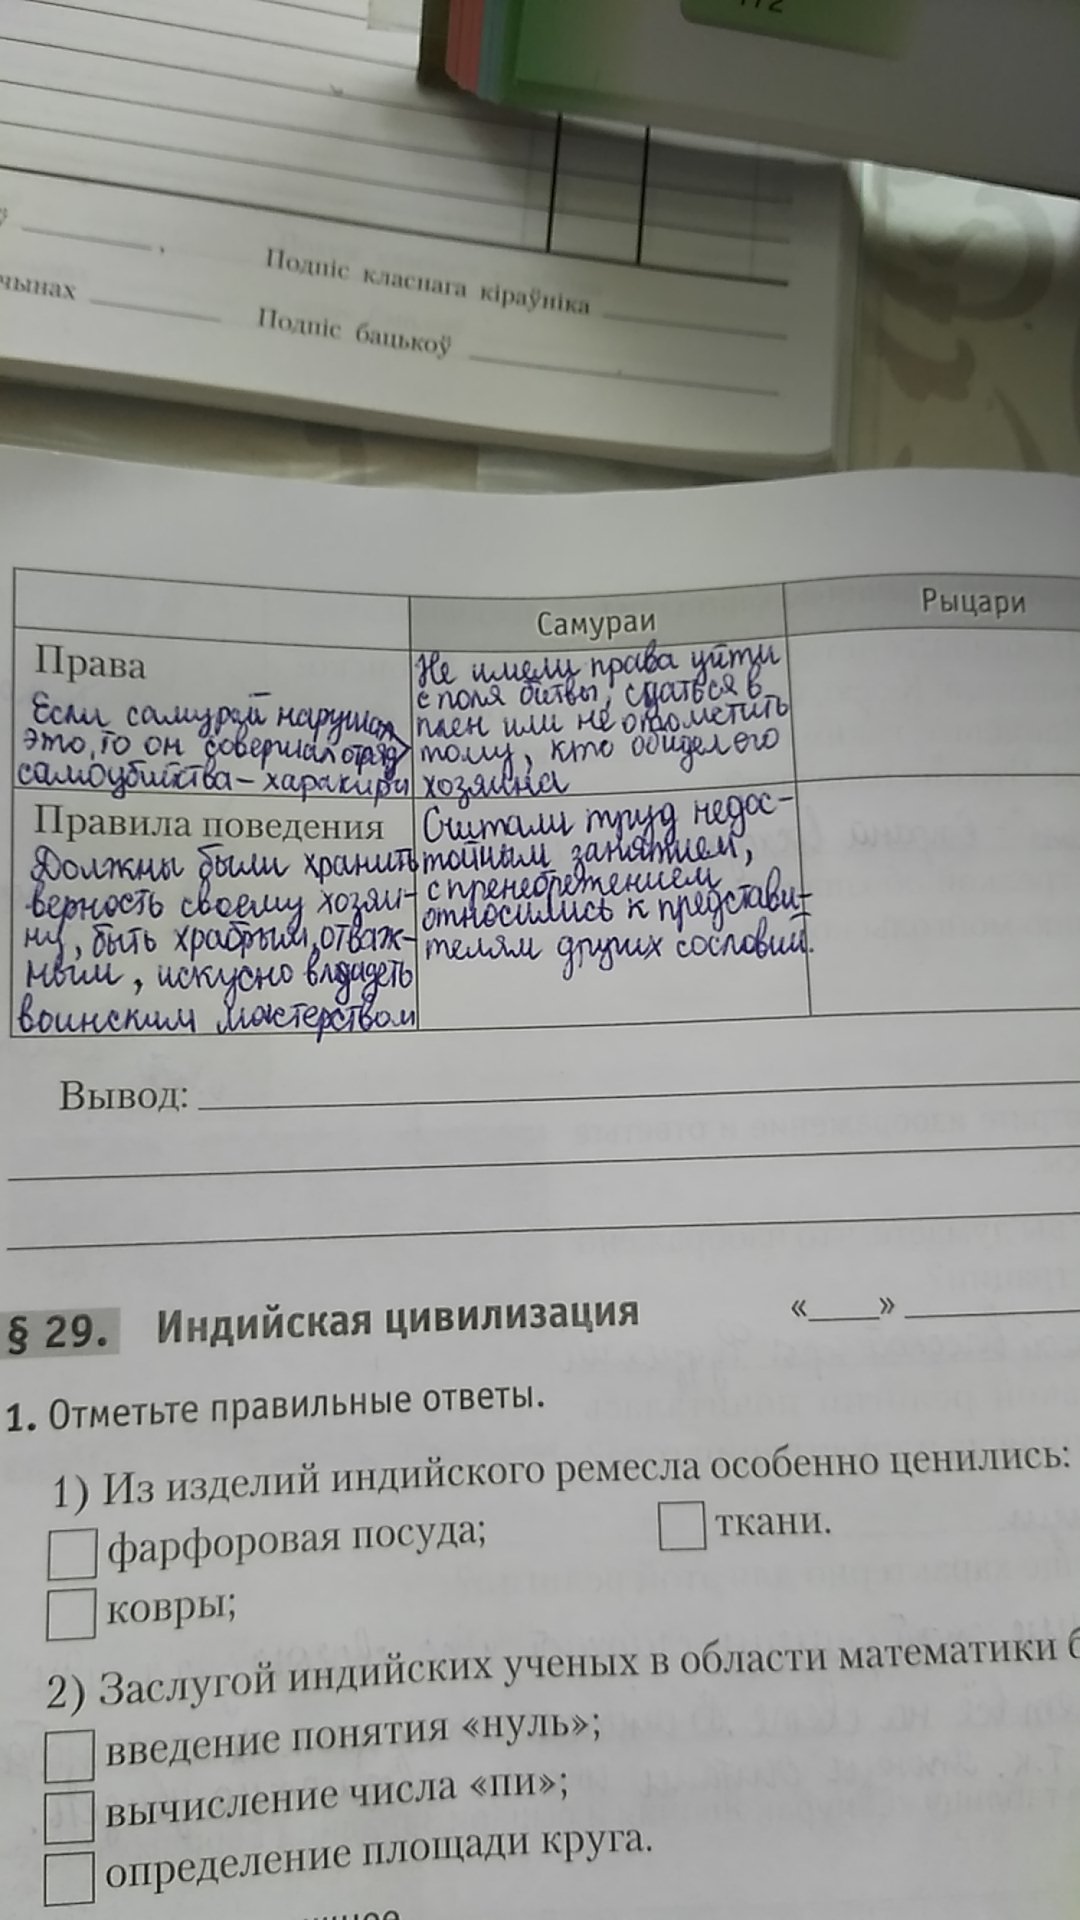 Подпіс класнага кіраўніка
чынах
Подпіс бацькоў
Самураи
Рыцари
Права
Если самурай нарушал
это, то он совершал обряд
самоубийства – харакири
Не имели права уйти
с поля битвы, сдаться в
плен или не отомстить
тому, кто обидел его
хозяина
Правила поведения
Должны были хранить
верность своему хозяи-
ну, быть храбрым, отваж-
ным, искусно владеть
воинским мастерством
Считали труд недос-
тойным занятием,
с пренебрежением
относились к представи-
телям других сословий.
Вывод:
§ 29. Индийская цивилизация «    »
1. Отметьте правильные ответы.
1) Из изделий индийского ремесла особенно ценились:
фарфоровая посуда; ткани.
ковры;
2) Заслугой индийских ученых в области математики б
введение понятия «нуль»;
вычисление числа «пи»;
определение площади круга.